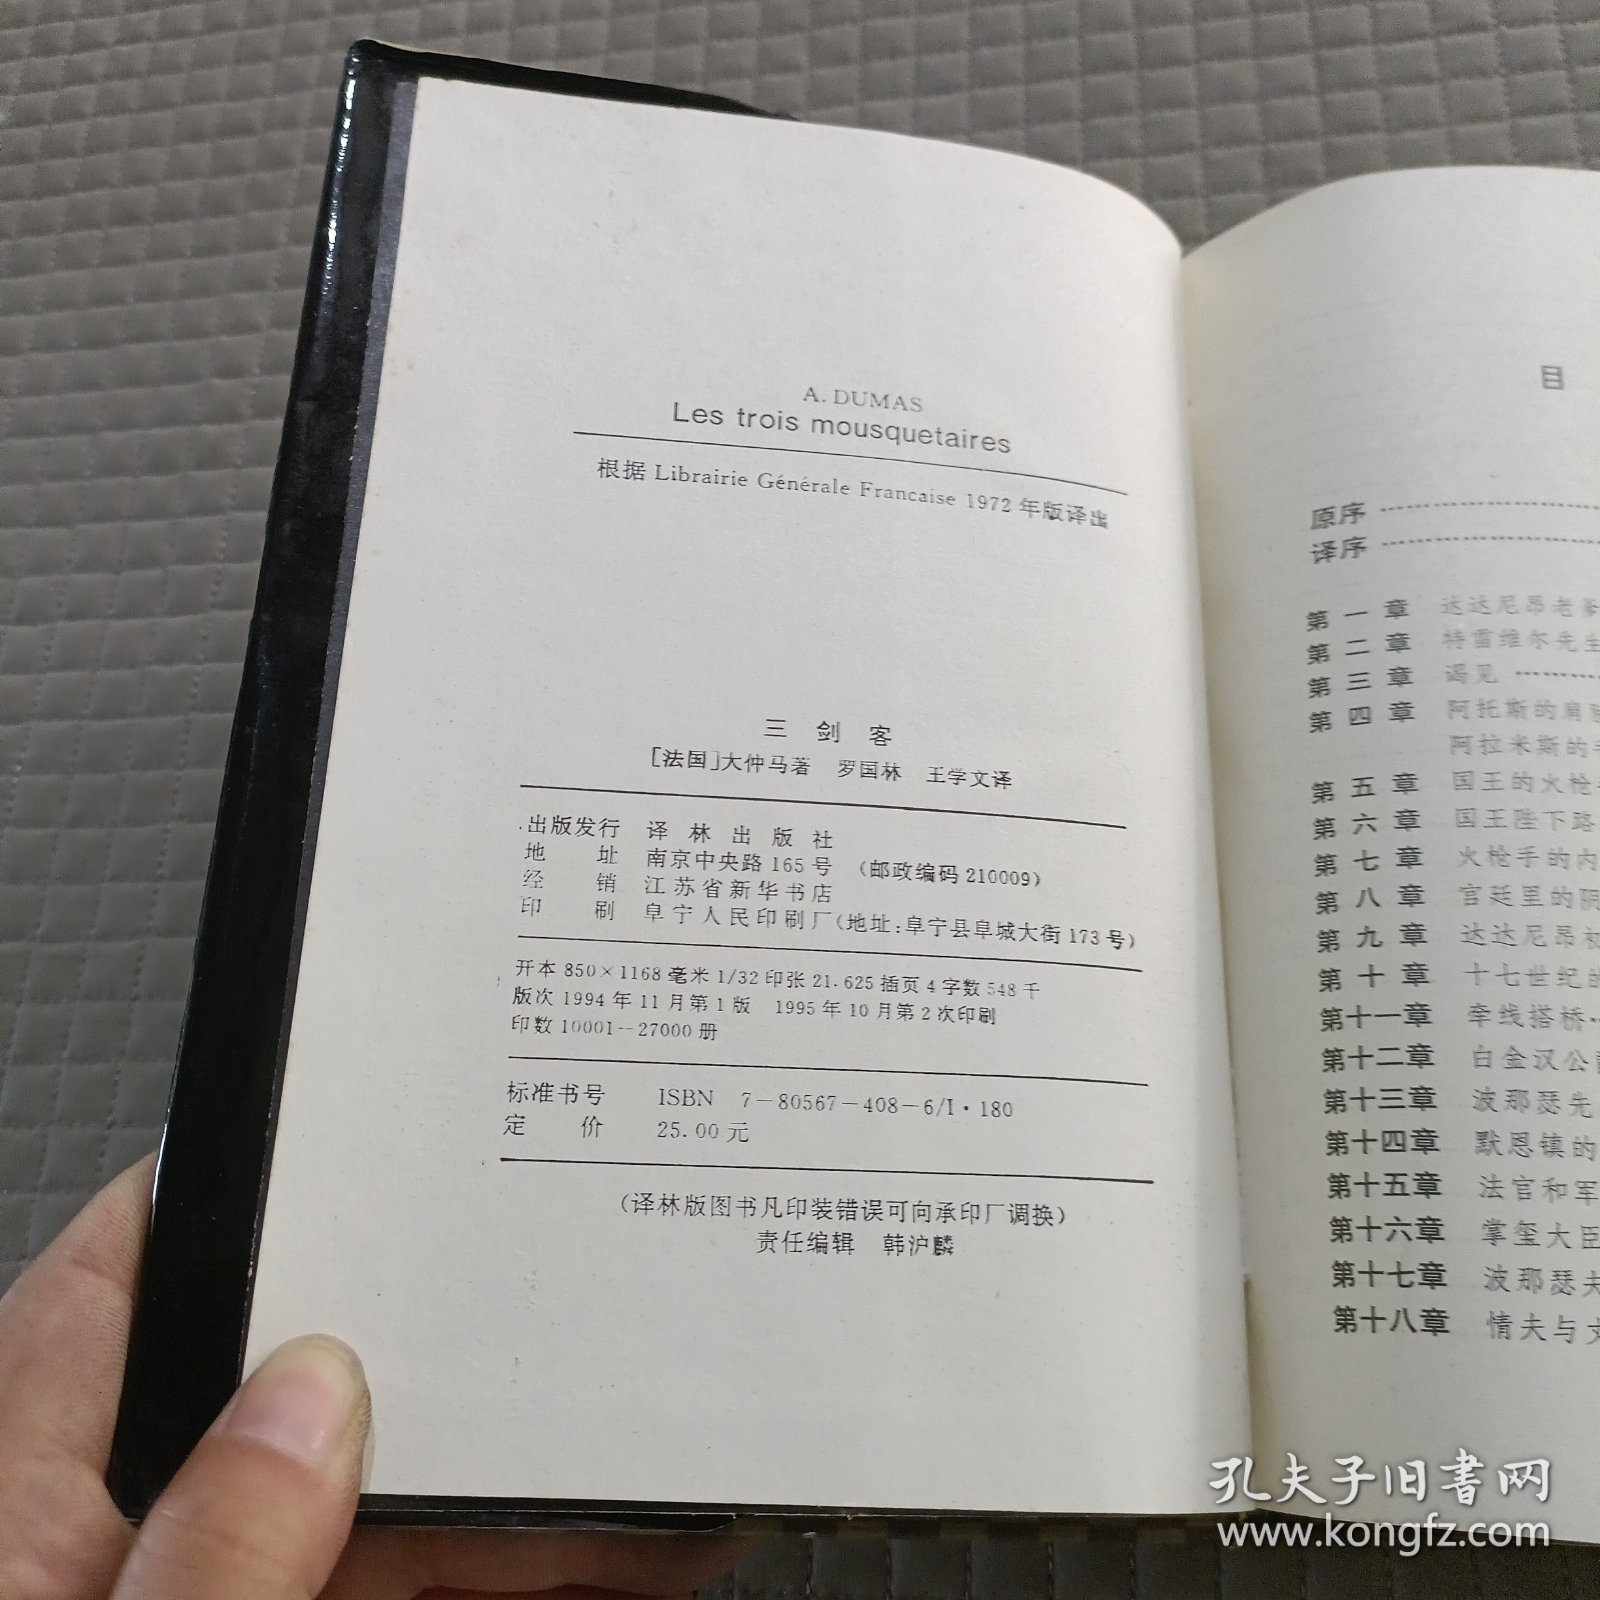 A. DUMAS
Les trois mousquetaires
根据 Librairie Générale Francaise 1972 年版译出
三 剑 客
[法国]大仲马著 罗国林 王学文译
出版发行 译林出版社
地 址 南京中央路 165 号 (邮政编码 210009)
经 销 江苏省新华书店
印 刷 阜宁人民印刷厂(地址:阜宁县阜城大街 173 号)
开本 850×1168 毫米 1/32 印张 21.625 插页 4 字数 548 千
版次 1994 年 11 月第 1 版 1995 年 10 月第 2 次印刷
印数 10001—27000 册
标准书号 ISBN 7-80567-408-6/I·180
定 价 25.00 元
(译林版图书凡印装错误可向承印厂调换)
责任编辑 韩沪麟
目
原序 ……………
译序 ……………
第一章 达达尼昂老爹
第二章 特雷维尔先生
第三章 谒见 ………
第四章 阿托斯的肩
阿拉米斯的手
第五章 国王的火枪
第六章 国王陛下路
第七章 火枪手的内
第八章 宫廷里的阴
第九章 达达尼昂初
第十章 十七世纪的
第十一章 牵线搭桥…
第十二章 白金汉公
第十三章 波那瑟先
第十四章 默恩镇的
第十五章 法官和军
第十六章 掌玺大臣
第十七章 波那瑟夫
第十八章 情夫与
孔夫子旧书网
www.kongfz.com